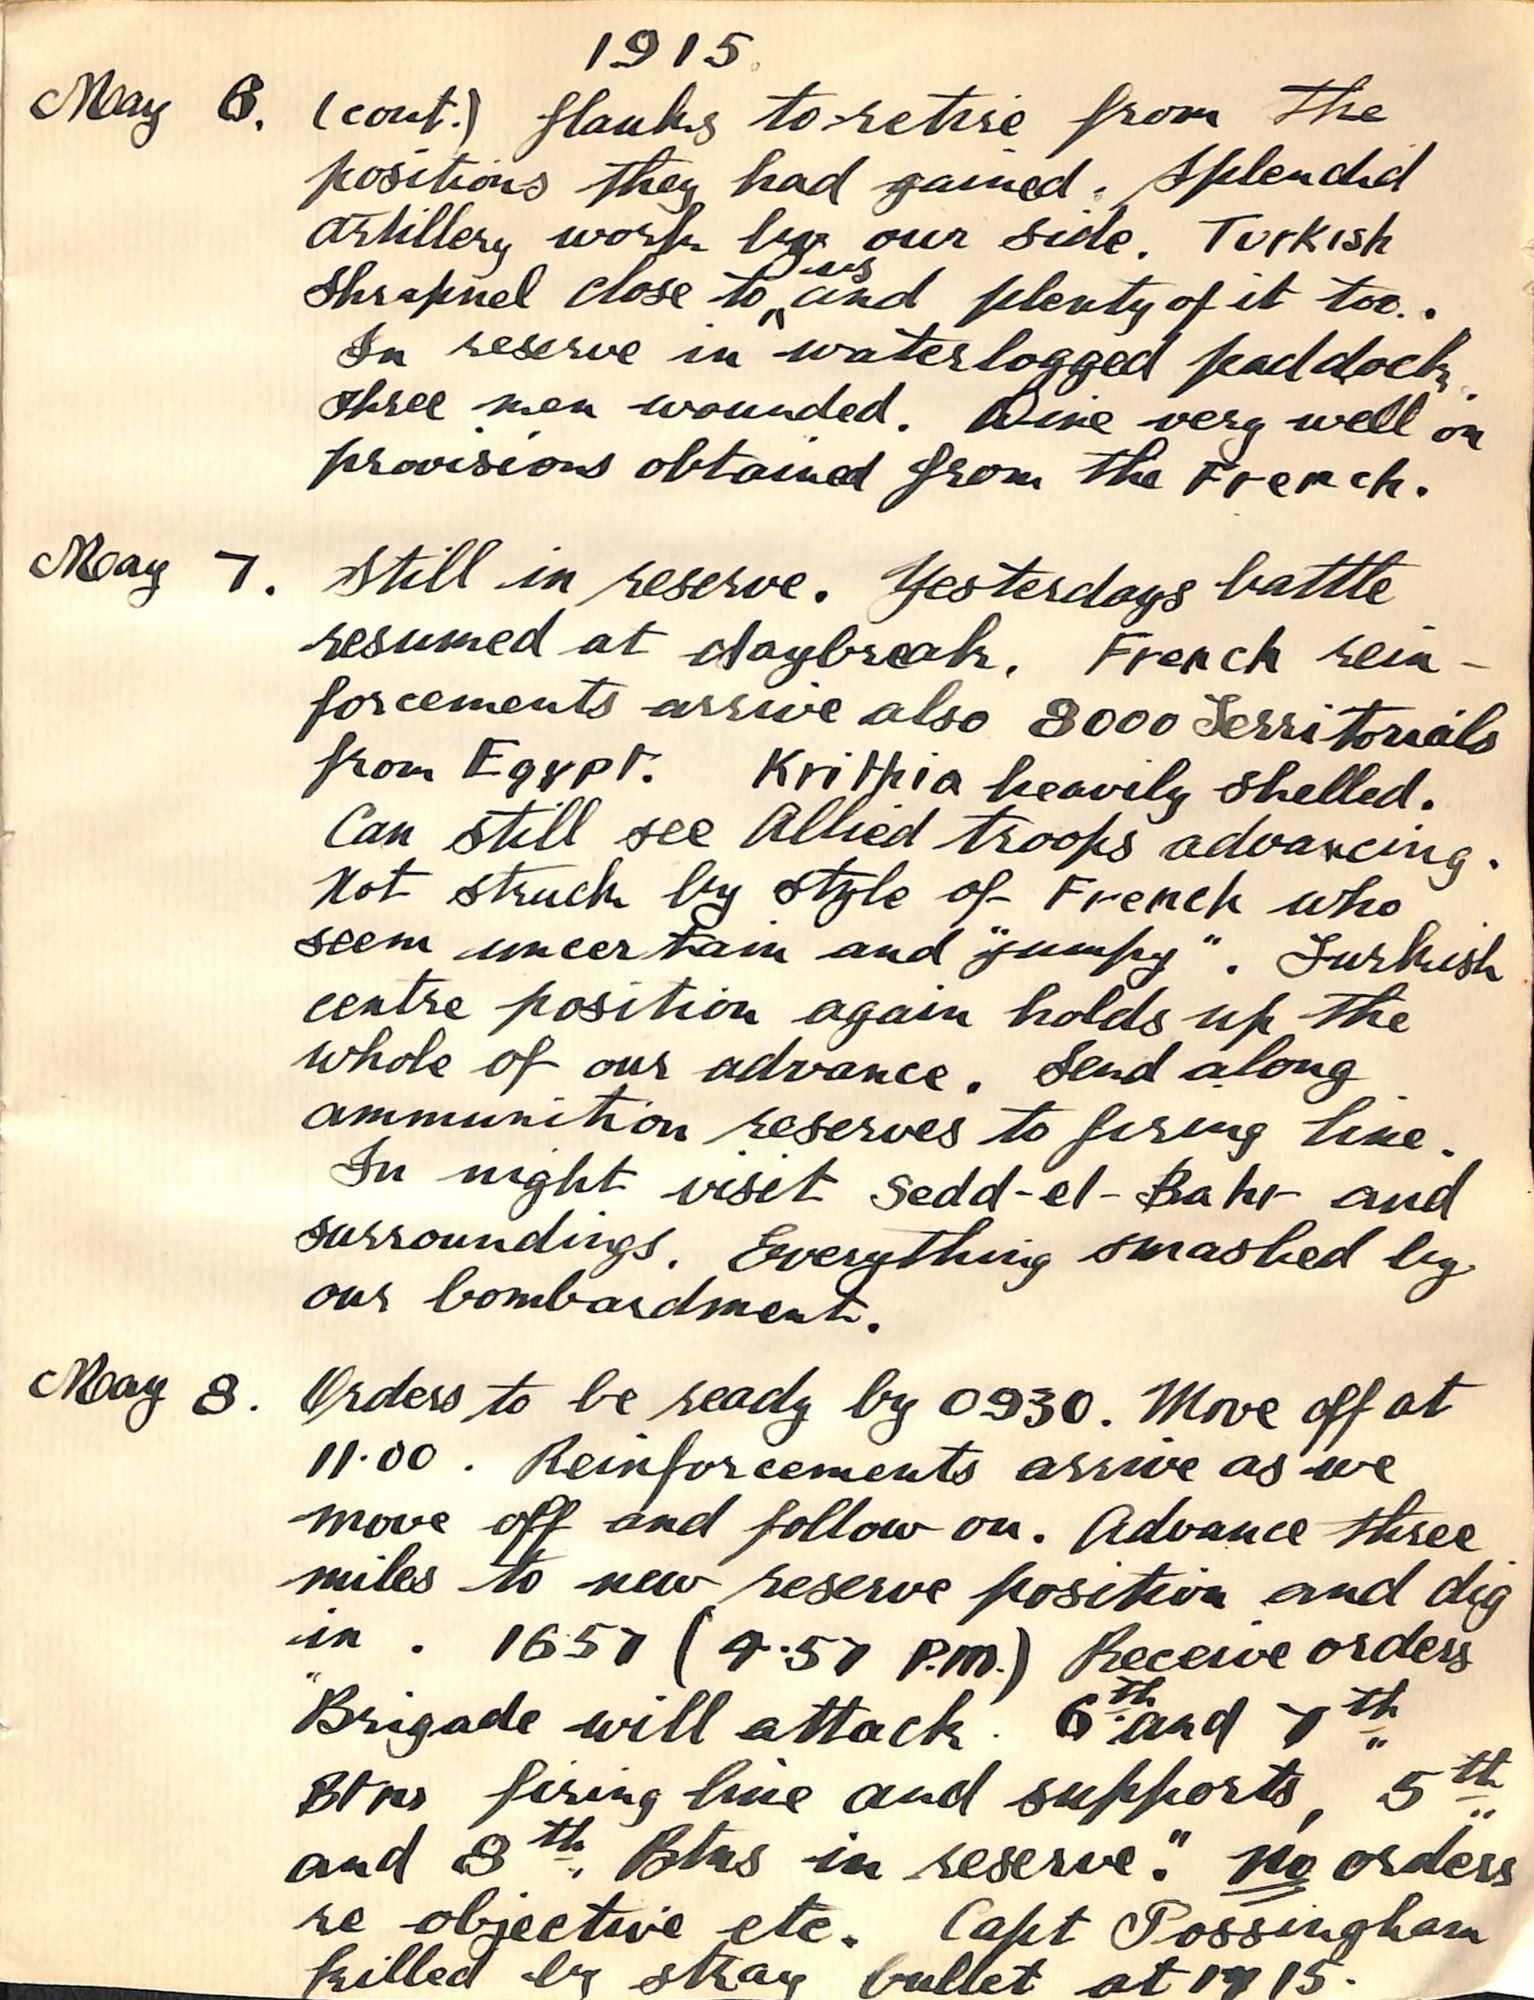 1915.
May 6. (cont.) flanks to retire from the
positions they had gained. Splendid
artillery work by our side. Turkish
shrapnel close to us and plenty of it too.
In reserve in waterlogged paddock.
Three men wounded. Dine very well on
provisions obtained from the French.
May 7. Still in reserve. Yesterdays battle
resumed at daybreak. French rein-
forcements arrive also 8000 Territorials
from Egypt. Krithia heavily shelled.
Can still see Allied troops advancing.
Not struck by style of French who
seem uncertain and "jumpy". Turkish
centre position again holds up the
whole of our advance. Send along
ammunition reserves to firing line.
In night visit Sedd-el-Bahr and
surroundings. Everything smashed by
our bombardment.
May 8. Orders to be ready by 0930. Move off at
11.00. Reinforcements arrive as we
move off and follow on. Advance three
miles to new reserve position and dig
in. 1657 (4.57 P.M.) Receive orders
"Brigade will attack. 6th and 7th
Btns firing line and supports, 5th
and 8th Btns in reserve." No orders
re objective etc. Capt Possingham
killed by stray bullet at 1715.